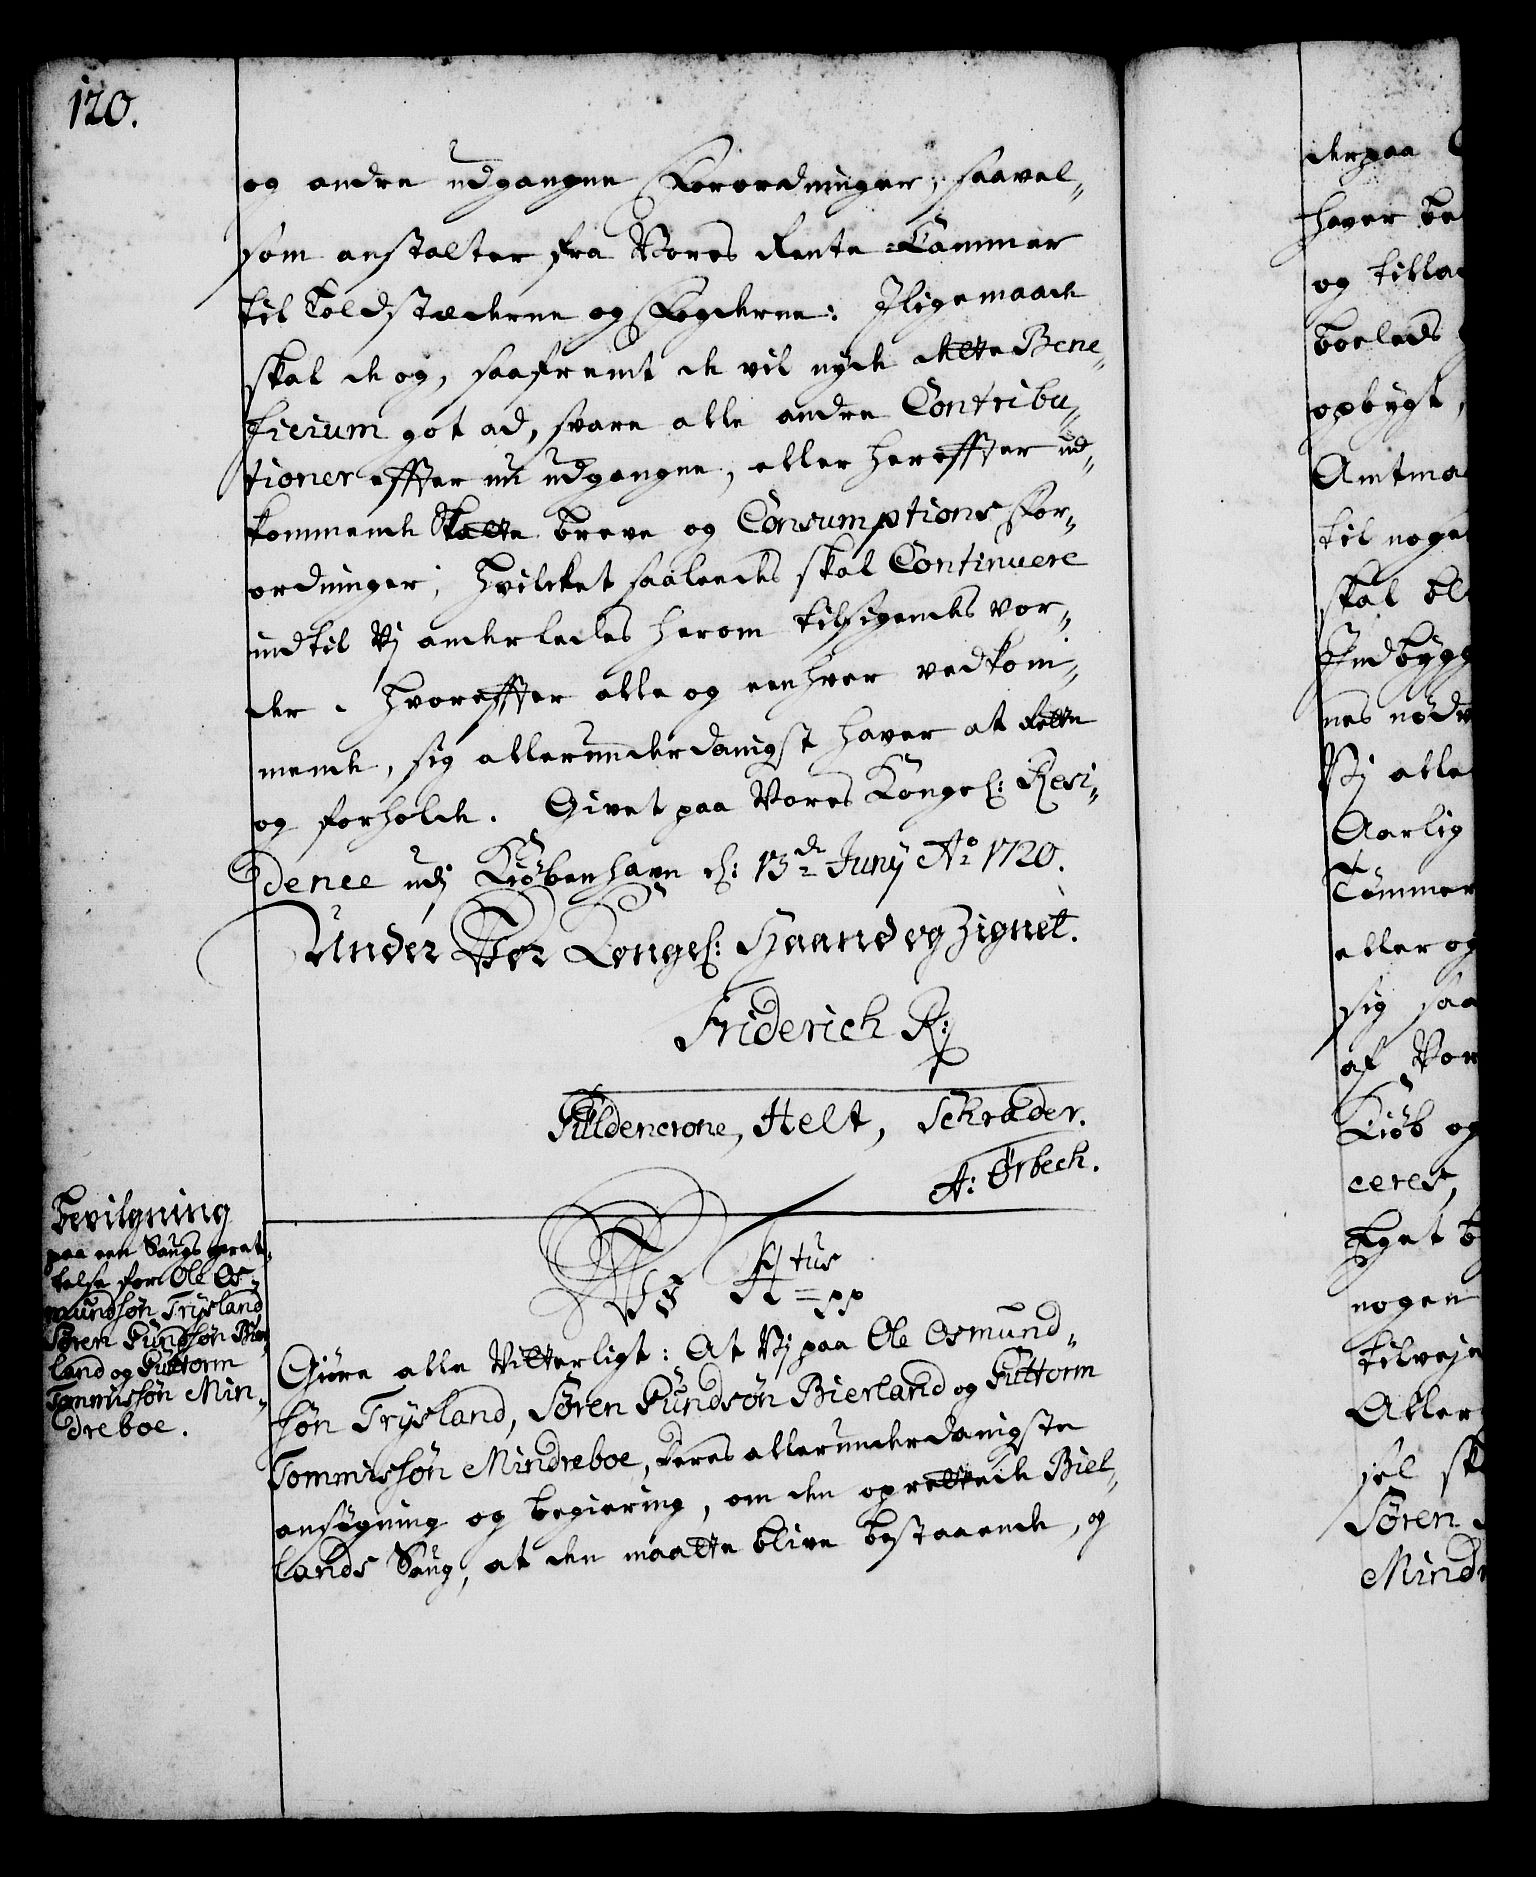 120.
og andre udgangne Forordninger, saavel-
som anstalter fra Vores Rente-Cammer
til Toldstæderne og Fogderne: Jligemaade
skal de og, saafremt de vil nyde dette Bene-
ficium got ad, svare alle andre Contribu-
tioner effter nu udgangne, eller hereffter ud-
kommende Skatte breve og Consumptions For-
ordninger; Hvilcket saaledes skal Continuere
indtil Vj anderledes herom tilsigendes vor-
der. Hvoreffter alle og eenhver vedkom-
mende, sig allerunderdanigst haver at Rette
og forholde. Givet paa Vores Kongel: Resi-
dence udj Kiöbenhavn d: 13de Junÿ Ao 1720.
Under Vor Kongel: Haand og Zignet.
Friderich R:
Güldencrone, Helt, Schrøder.
A: Ørbech.
Bevilgning
paa een Saugs opret-
telse for Ole Os-
mundsøn Trÿsland
Søren Gundsøn Bier-
land og Guttorm
Tommissøn Min-
dreboe.
Vj F4tus
R = pp
Giöre alle Vitterligt: At Vj paa Ole Osmund-
søn Trÿsland, Søren Gundsøn Bierland og Guttorm
Tommissøn Mindreboe, Deres allerunderdanigste
ansögning og begiering, om den oprettede Biel-
lands Saug, at den maatte blive bestaaende, og
derpaa
haver be
og tillad
boeleds
opbygt,
Amtma
til noge
skal bl
Jndbygg
nes nødv
Vj alle
Aarlig
Tömmer
eller og
sig saa
af Vor
Kiöb og
ceres,
Eget b
nogen
tilveje
Aller
sel sk
Søren
Mindr